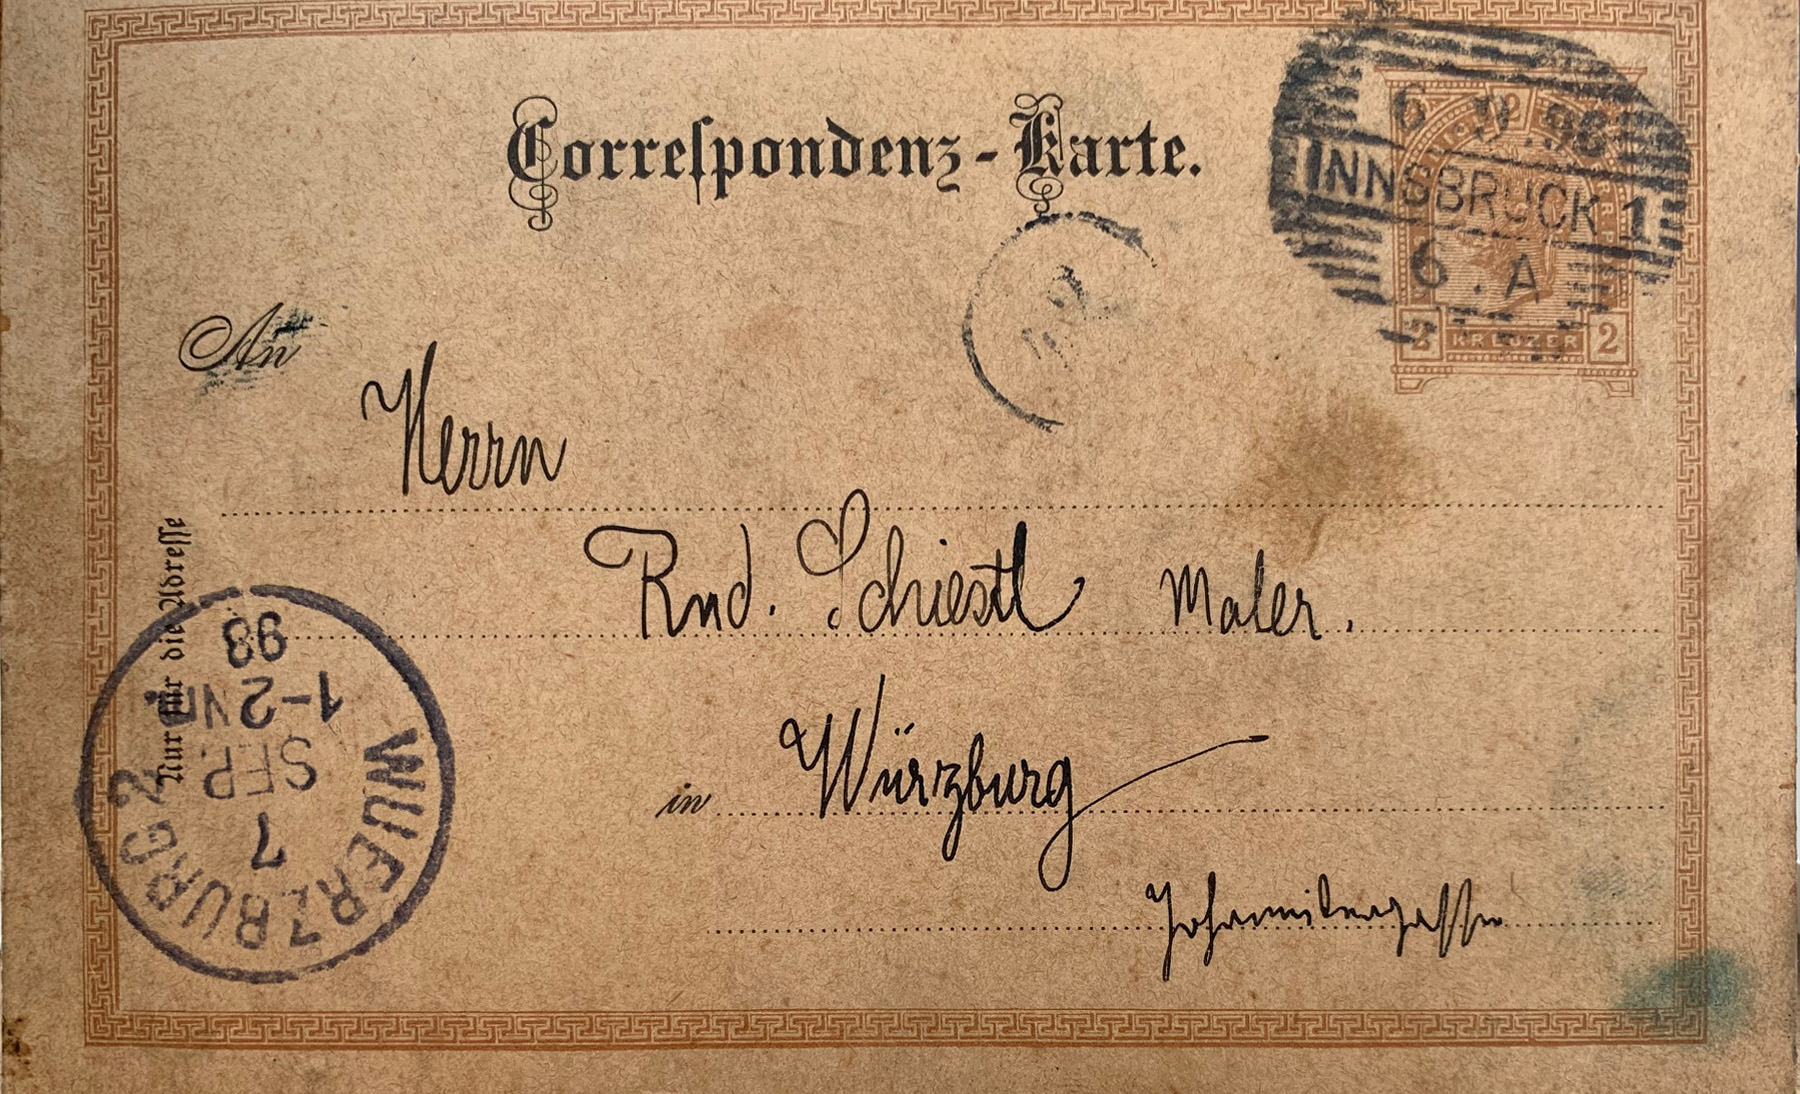 Correspondenz-Karte.
6 9.98
INNSBRUCK 1
6.A
2 KREUZER 2
An
Herrn
Rud. Schiestl Maler.
in Würzburg
Johannitergasse
Nur für die Adresse
WUERZBURG 2
7
SEP.
1-2NM
98